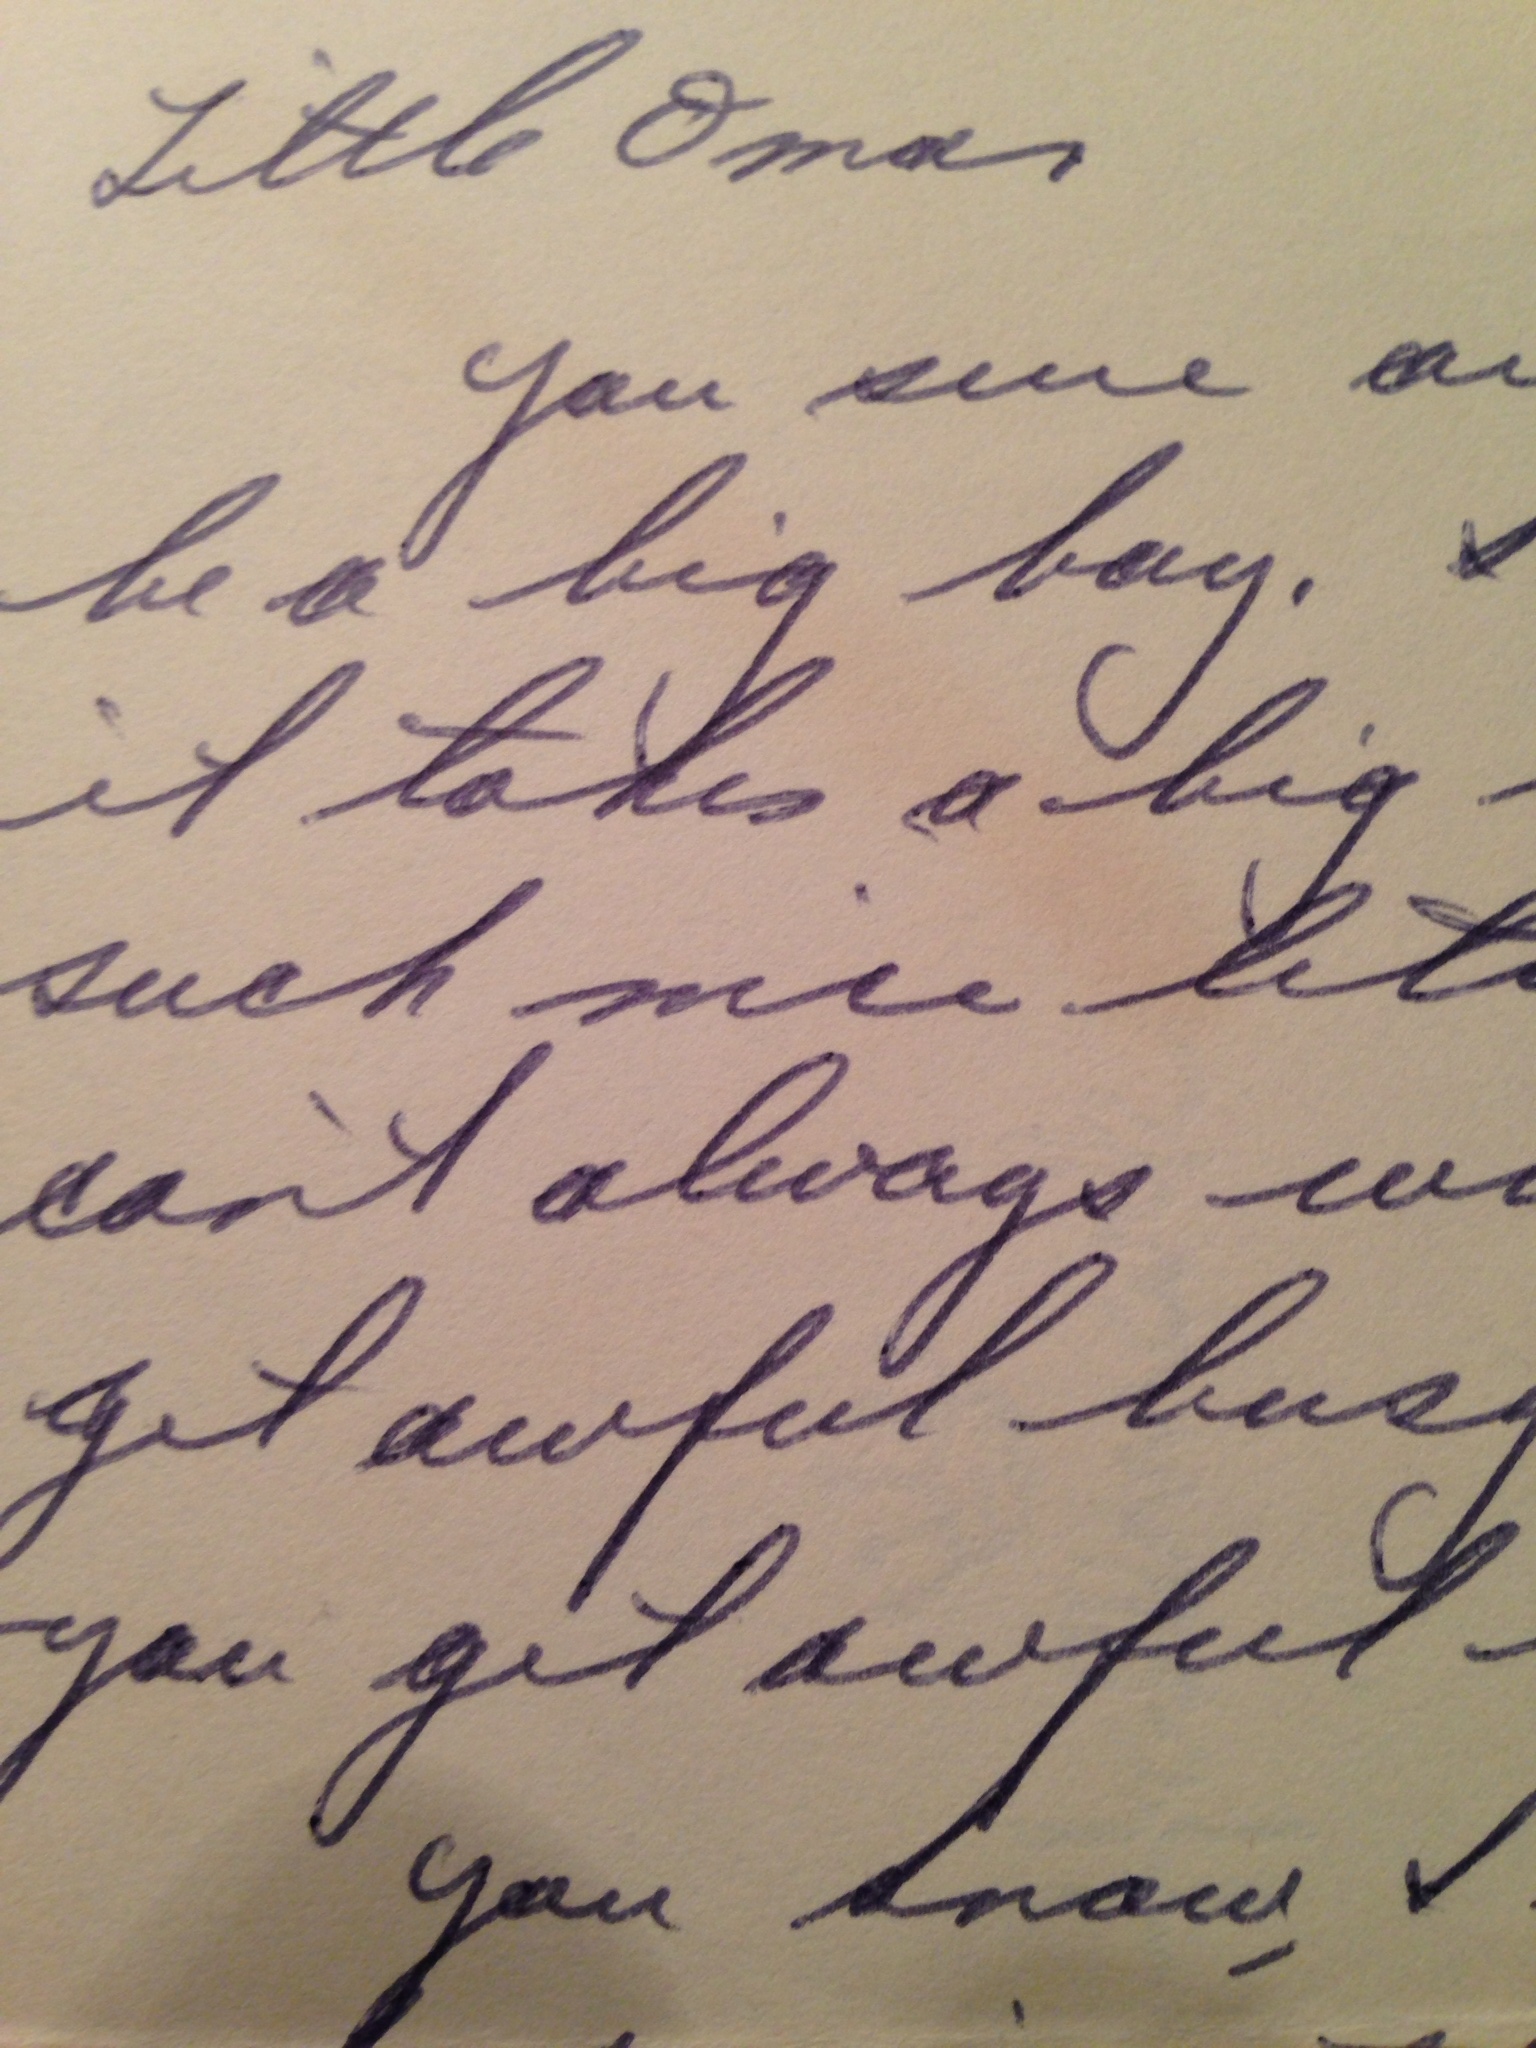 Little Omar
you sure
be a big boy.
it takes a big
such nice
can't always
get awful busy
you get awful
you know,